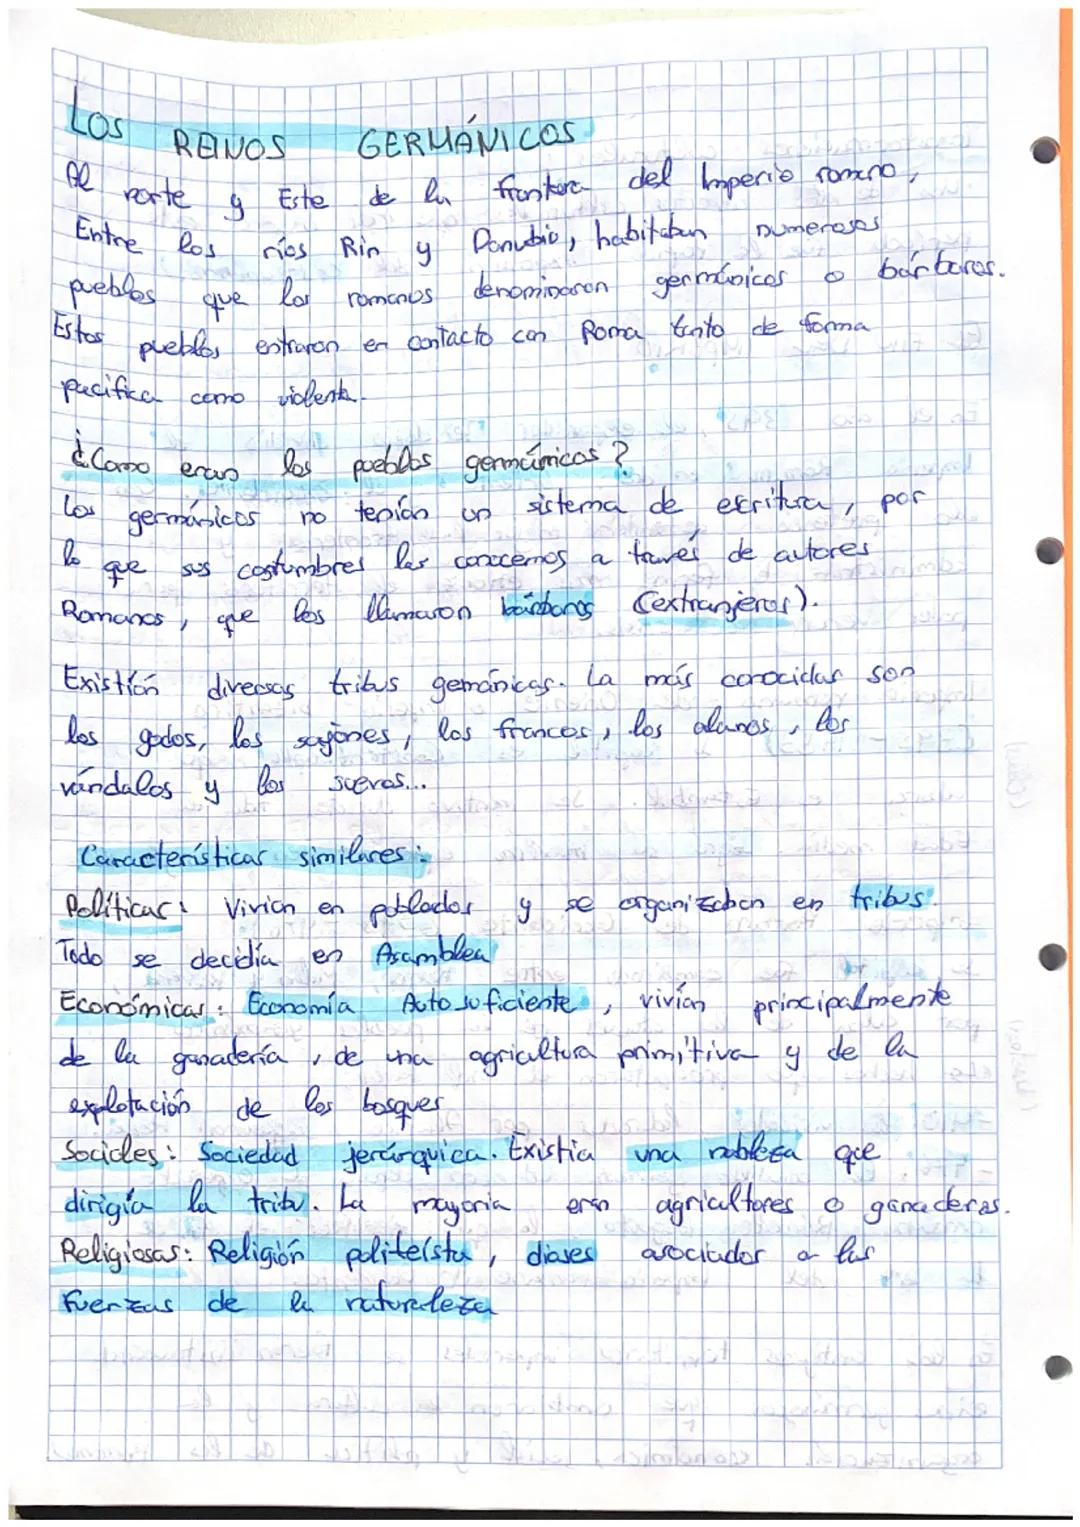 LOS REINOS GERMÁNICOS
Al norte y Este de la frontera del Imperio romano,
Entre los ríos Rin y Danubio, habitaban numerosos
pueblos que los romanos denominaron germánicos o bárbaros.
Estos pueblos entraron en contacto con Roma tanto de forma
pacifica como violenta.
¿Como eran los pueblos germánicos?
Los germánicos no tenían un sistema de escritura, por
lo que sus costumbres las conocemos a través de autores
Romanos, que los llamaron bárbaros (extranjeros).
Existían diversas tribus gemánicas. La más conocidas son
los godos, los sajones, los francos, los alanos, los
vándalos y los suevos...
Características similares:
Políticas: Vivían en poblados y se organizaban en tribus.
Todo se decidía en Asamblea
Económicas: Economía Autosuficiente, vivían principalmente
de la ganadería, de una agricultura primitiva y de la
explotación de los bosques
Sociales: Sociedad jerárquica. Existía una nobleza que
dirigía la tribu. La mayoria eran agricultores o ganaderos.
Religiosas: Religión politeísta, dioses asociados a las
fuerzas de la naturaleza